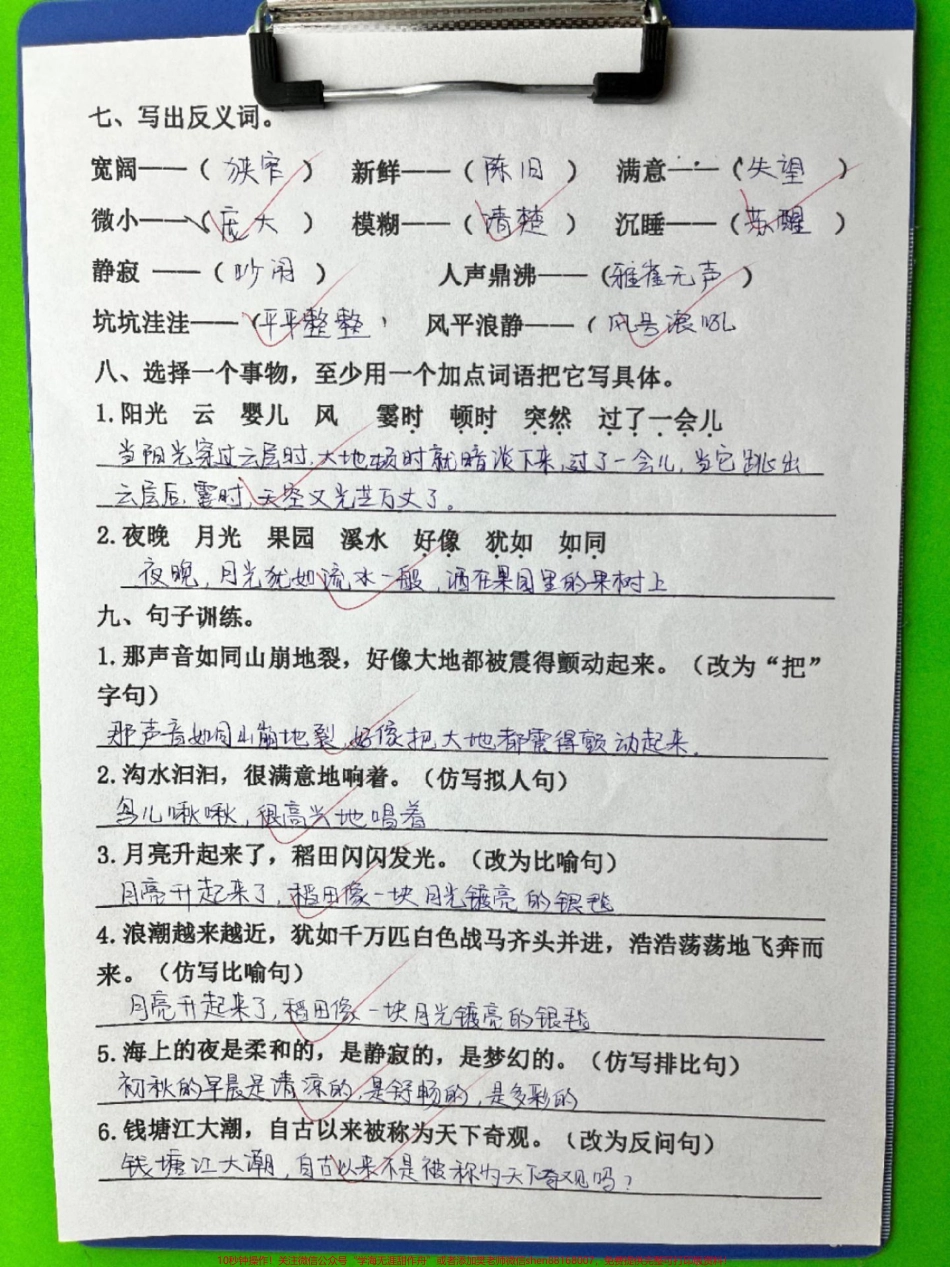 七、写出反义词。
宽阔——（ 狭窄 ） 新鲜——（ 陈旧 ） 满意——（ 失望 ）
微小——（ 庞大 ） 模糊——（ 清楚 ） 沉睡——（ 苏醒 ）
静寂 ——（ 吵闹 ） 人声鼎沸——（雅雀无声 ）
坑坑洼洼——（平平整整 ） 风平浪静——（ 风号浪吼
八、选择一个事物，至少用一个加点词语把它写具体。
1.阳光 云 婴儿 风 霎时 顿时 突然 过了一会儿
当阳光穿过云层时，大地顿时就暗淡下来，过了一会儿，当它跳出
云层后，霎时，天空又光芒万丈了。
2.夜晚 月光 果园 溪水 好像 犹如 如同
夜晚，月光犹如流水一般，洒在果园里的果树上
九、句子训练。
1.那声音如同山崩地裂，好像大地都被震得颤动起来。（改为“把”
字句）
那声音如同山崩地裂，好像把大地都震得颤动起来。
2.沟水汩汩，很满意地响着。（仿写拟人句）
鸟儿啾啾，很高兴地唱着
3.月亮升起来了，稻田闪闪发光。（改为比喻句）
月亮升起来了，稻田像一块月光镀亮的银毯
4.浪潮越来越近，犹如千万匹白色战马齐头并进，浩浩荡荡地飞奔而
来。（仿写比喻句）
月亮升起来了，稻田像一块月光镀亮的银毯
5.海上的夜是柔和的，是静寂的，是梦幻的。（仿写排比句）
初秋的早晨是清凉的，是舒畅的，是多彩的
6.钱塘江大潮，自古以来被称为天下奇观。（改为反问句）
钱塘江大潮，自古以来不是被称为天下奇观吗？
10秒钟操作！关注微信公众号“学海无涯甜作舟”或者添加莫老师微信shen88168007，免费提供完整可打印版资料！